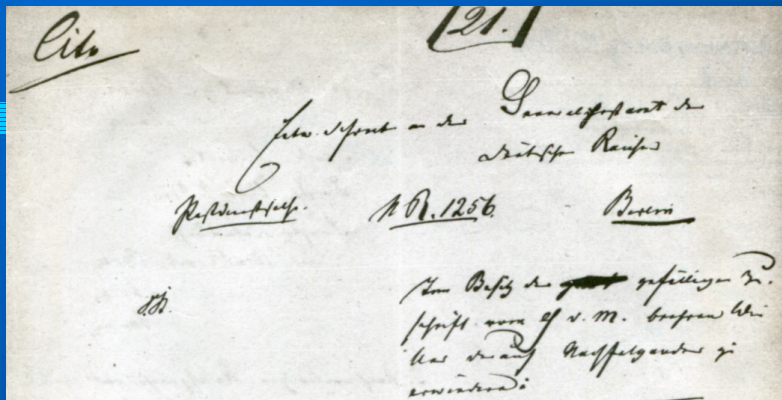 Cito
[21.]
an das General-Postamt des
Deutschen Reiches
Postdienstsache. N R. 1256. Berlin
Im Besitz der gefälligen Zu-
schrift vom v. M. beehren wir
darauf Nachfolgendes zu
erwiedern: